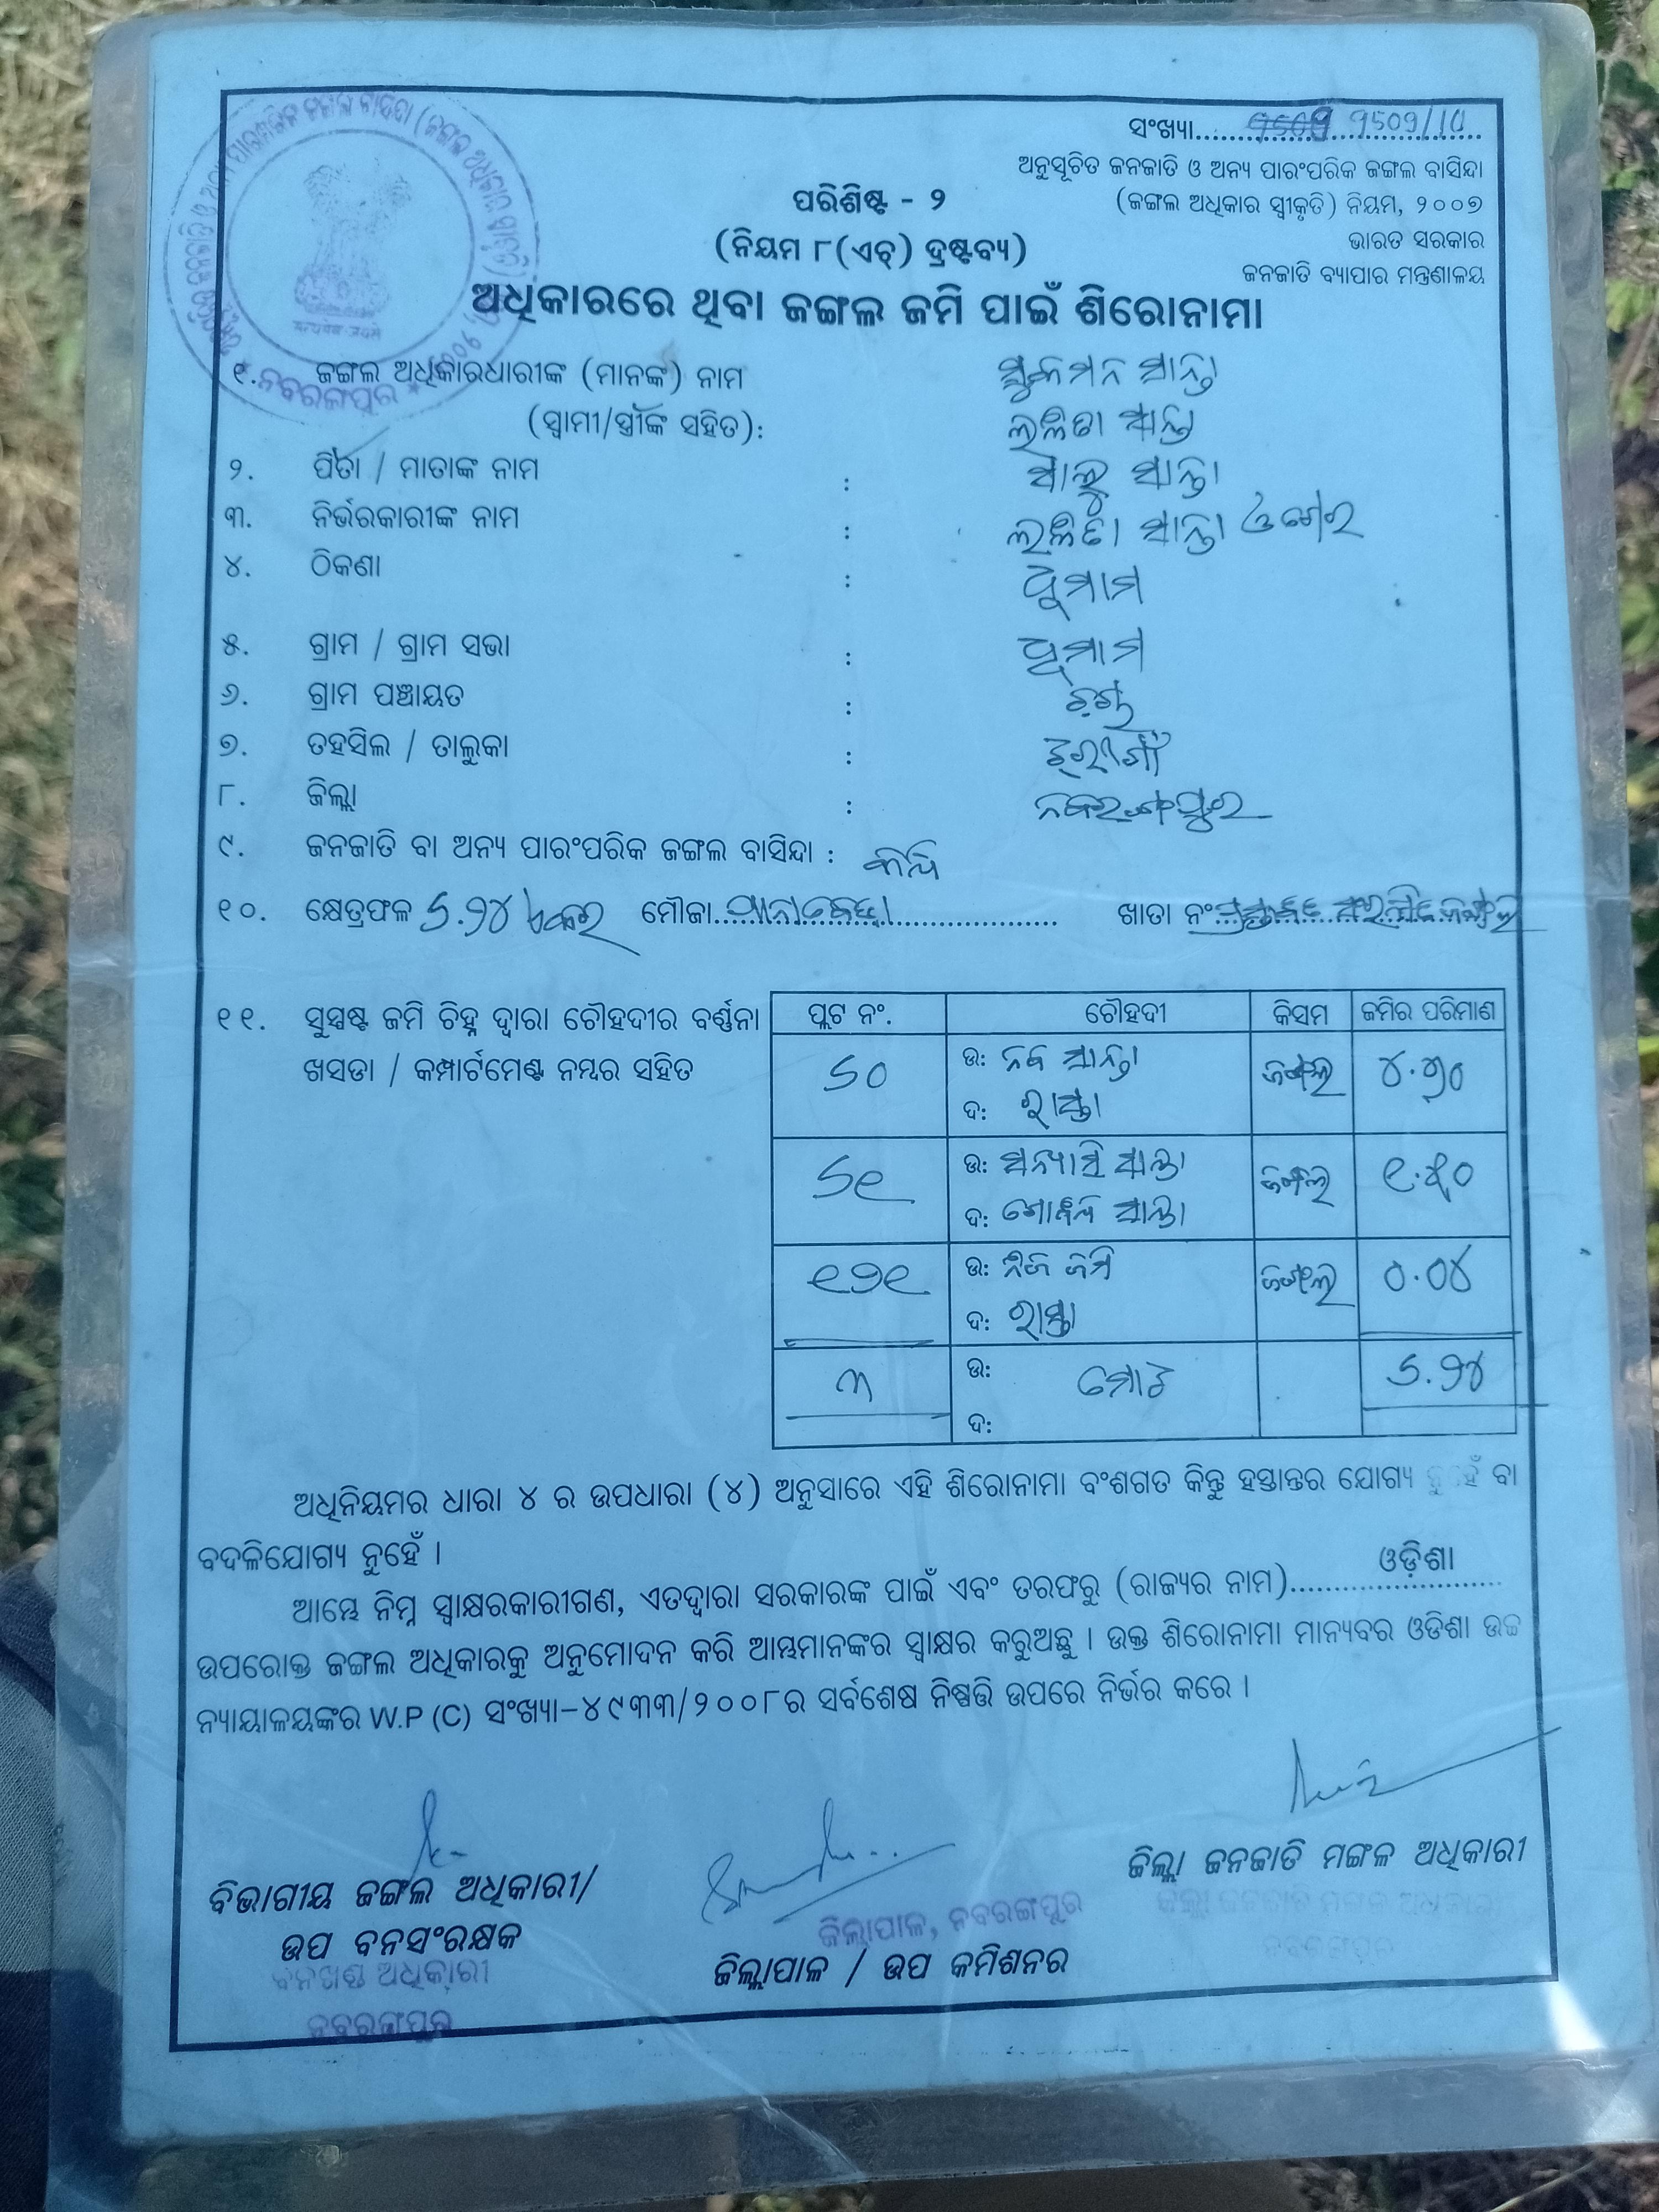 ସଂଖ୍ୟା........................
ଅନୁସୂଚିତ ଜନଜାତି ଓ ଅନ୍ୟ ପାରଂପରିକ ଜଙ୍ଗଲ ବାସିନ୍ଦା
ପରିଶିଷ୍ଟ - ୨
(ଜଙ୍ଗଲ ଅଧିକାର ସ୍ୱୀକୃତି) ନିୟମ, ୨୦୦୭
(ନିୟମ ୮(ଏଚ୍) ଦ୍ରଷ୍ଟବ୍ୟ)
ଭାରତ ସରକାର
ଜନଜାତି ବ୍ୟାପାର ମନ୍ତ୍ରଣାଳୟ
ଅଧିକାରରେ ଥିବା ଜଙ୍ଗଲ ଜମି ପାଇଁ ଶିରୋନାମା
୧. ଜଙ୍ଗଲ ଅଧିକାରଧାରୀଙ୍କ (ମାନଙ୍କ) ନାମ ସୁକମନ ସାନ୍ତା
(ସ୍ୱାମୀ/ସ୍ତ୍ରୀଙ୍କ ସହିତ): ଲଳିତା ସାନ୍ତା
୨. ପିତା / ମାତାଙ୍କ ନାମ : ସାଲୁ ସାନ୍ତା
୩. ନିର୍ଭରକାରୀଙ୍କ ନାମ : ଲଳିତା ସାନ୍ତା
୪. ଠିକଣା :
୫. ଗ୍ରାମ / ଗ୍ରାମ ସଭା :
୬. ଗ୍ରାମ ପଞ୍ଚାୟତ :
୭. ତହସିଲ / ତାଲୁକା : ଝରୀଗାଁ
୮. ଜିଲ୍ଲା : ନବରଙ୍ଗପୁର
୯. ଜନଜାତି ବା ଅନ୍ୟ ପାରଂପରିକ ଜଙ୍ଗଲ ବାସିନ୍ଦା :
୧୦. କ୍ଷେତ୍ରଫଳ ୬.୨୪ ଏକର ମୌଜା........................ ଖାତା ନଂ
୧୧. ସୁସ୍ପଷ୍ଟ ଜମି ଚିହ୍ନ ଦ୍ୱାରା ଚୌହଦୀର ବର୍ଣ୍ଣନା
ଖସଡା / କମ୍ପାର୍ଟମେଣ୍ଟ ନମ୍ବର ସହିତ
ପ୍ଲଟ ନଂ. ଚୌହଦୀ କିସମ ଜମିର ପରିମାଣ
୬୦ ଉ: ନବ ସାନ୍ତା ଜଙ୍ଗଲ ୪.୭୦
ଦ: ରାସ୍ତା
୬୧ ଉ: ସନ୍ୟାସି ସାନ୍ତା ଜଙ୍ଗଲ ୧.୫୦
ଦ: ଗୋବିନ୍ଦ ସାନ୍ତା
୧୨୧ ଉ: ନିଜ ଜମି ଜଙ୍ଗଲ ୦.୦୪
ଦ: ରାସ୍ତା
୩ ଉ: ମୋଟ ୬.୨୪
ଦ:
ଅଧିନିୟମର ଧାରା ୪ ର ଉପଧାରା (୪) ଅନୁସାରେ ଏହି ଶିରୋନାମା ବଂଶଗତ କିନ୍ତୁ ହସ୍ତାନ୍ତର ଯୋଗ୍ୟ ନୁହେଁ ବା
ବଦଳିଯୋଗ୍ୟ ନୁହେଁ ।
ଆମ୍ଭେ ନିମ୍ନ ସ୍ୱାକ୍ଷରକାରୀଗଣ, ଏତଦ୍ୱାରା ସରକାରଙ୍କ ପାଇଁ ଏବଂ ତରଫରୁ (ରାଜ୍ୟର ନାମ)........ଓଡ଼ିଶା........
ଉପରୋକ୍ତ ଜଙ୍ଗଲ ଅଧିକାରକୁ ଅନୁମୋଦନ କରି ଆମ୍ଭମାନଙ୍କର ସ୍ୱାକ୍ଷର କରୁଅଛୁ । ଉକ୍ତ ଶିରୋନାମା ମାନ୍ୟବର ଓଡିଶା ଉଚ୍ଚ
ନ୍ୟାୟାଳୟଙ୍କର W.P (C) ସଂଖ୍ୟା-୪୯୩୩/୨୦୦୮ର ସର୍ବଶେଷ ନିଷ୍ପତ୍ତି ଉପରେ ନିର୍ଭର କରେ ।
ବିଭାଗୀୟ ଜଙ୍ଗଲ ଅଧିକାରୀ/
ଉପ ବନସଂରକ୍ଷକ
ବନଖଣ୍ଡ ଅଧିକାରୀ
ନବରଙ୍ଗପୁର
ଜିଲ୍ଲାପାଳ, ନବରଙ୍ଗପୁର
ଜିଲ୍ଲାପାଳ / ଉପ କମିଶନର
ଜିଲ୍ଲା ଜନଜାତି ମଙ୍ଗଳ ଅଧିକାରୀ
ଜିଲ୍ଲା ଜନଜାତି ମଙ୍ଗଳ ଅଧିକାରୀ
ନବରଙ୍ଗପୁର